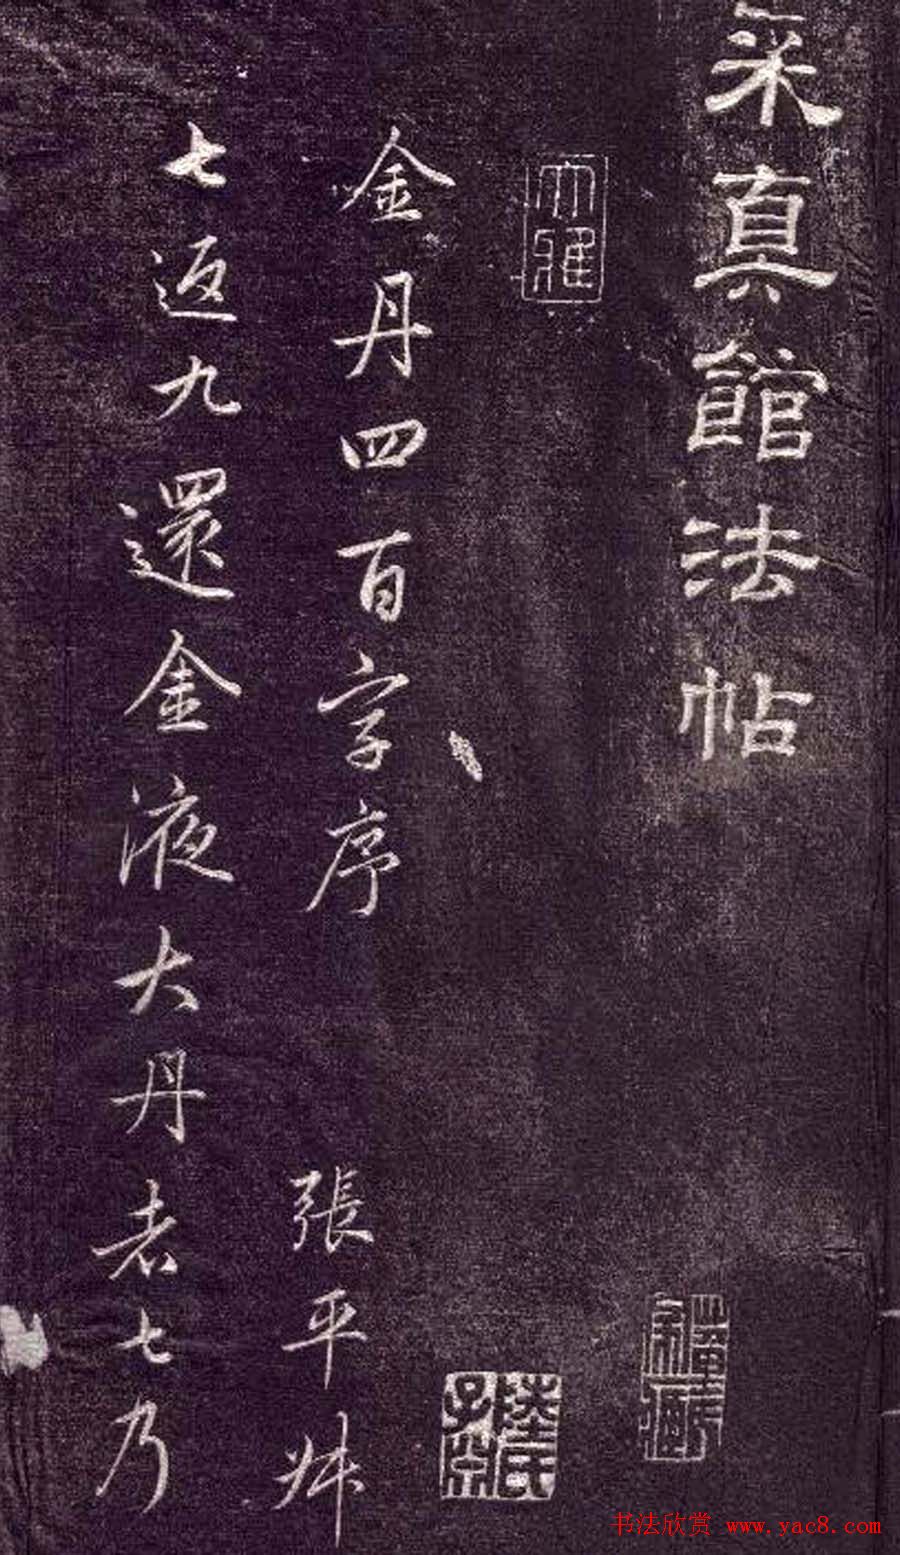 采真館法帖
大雅
金丹四百字序
張平叔
七返九還金液大丹者七乃
书法欣赏 www.yac8.com